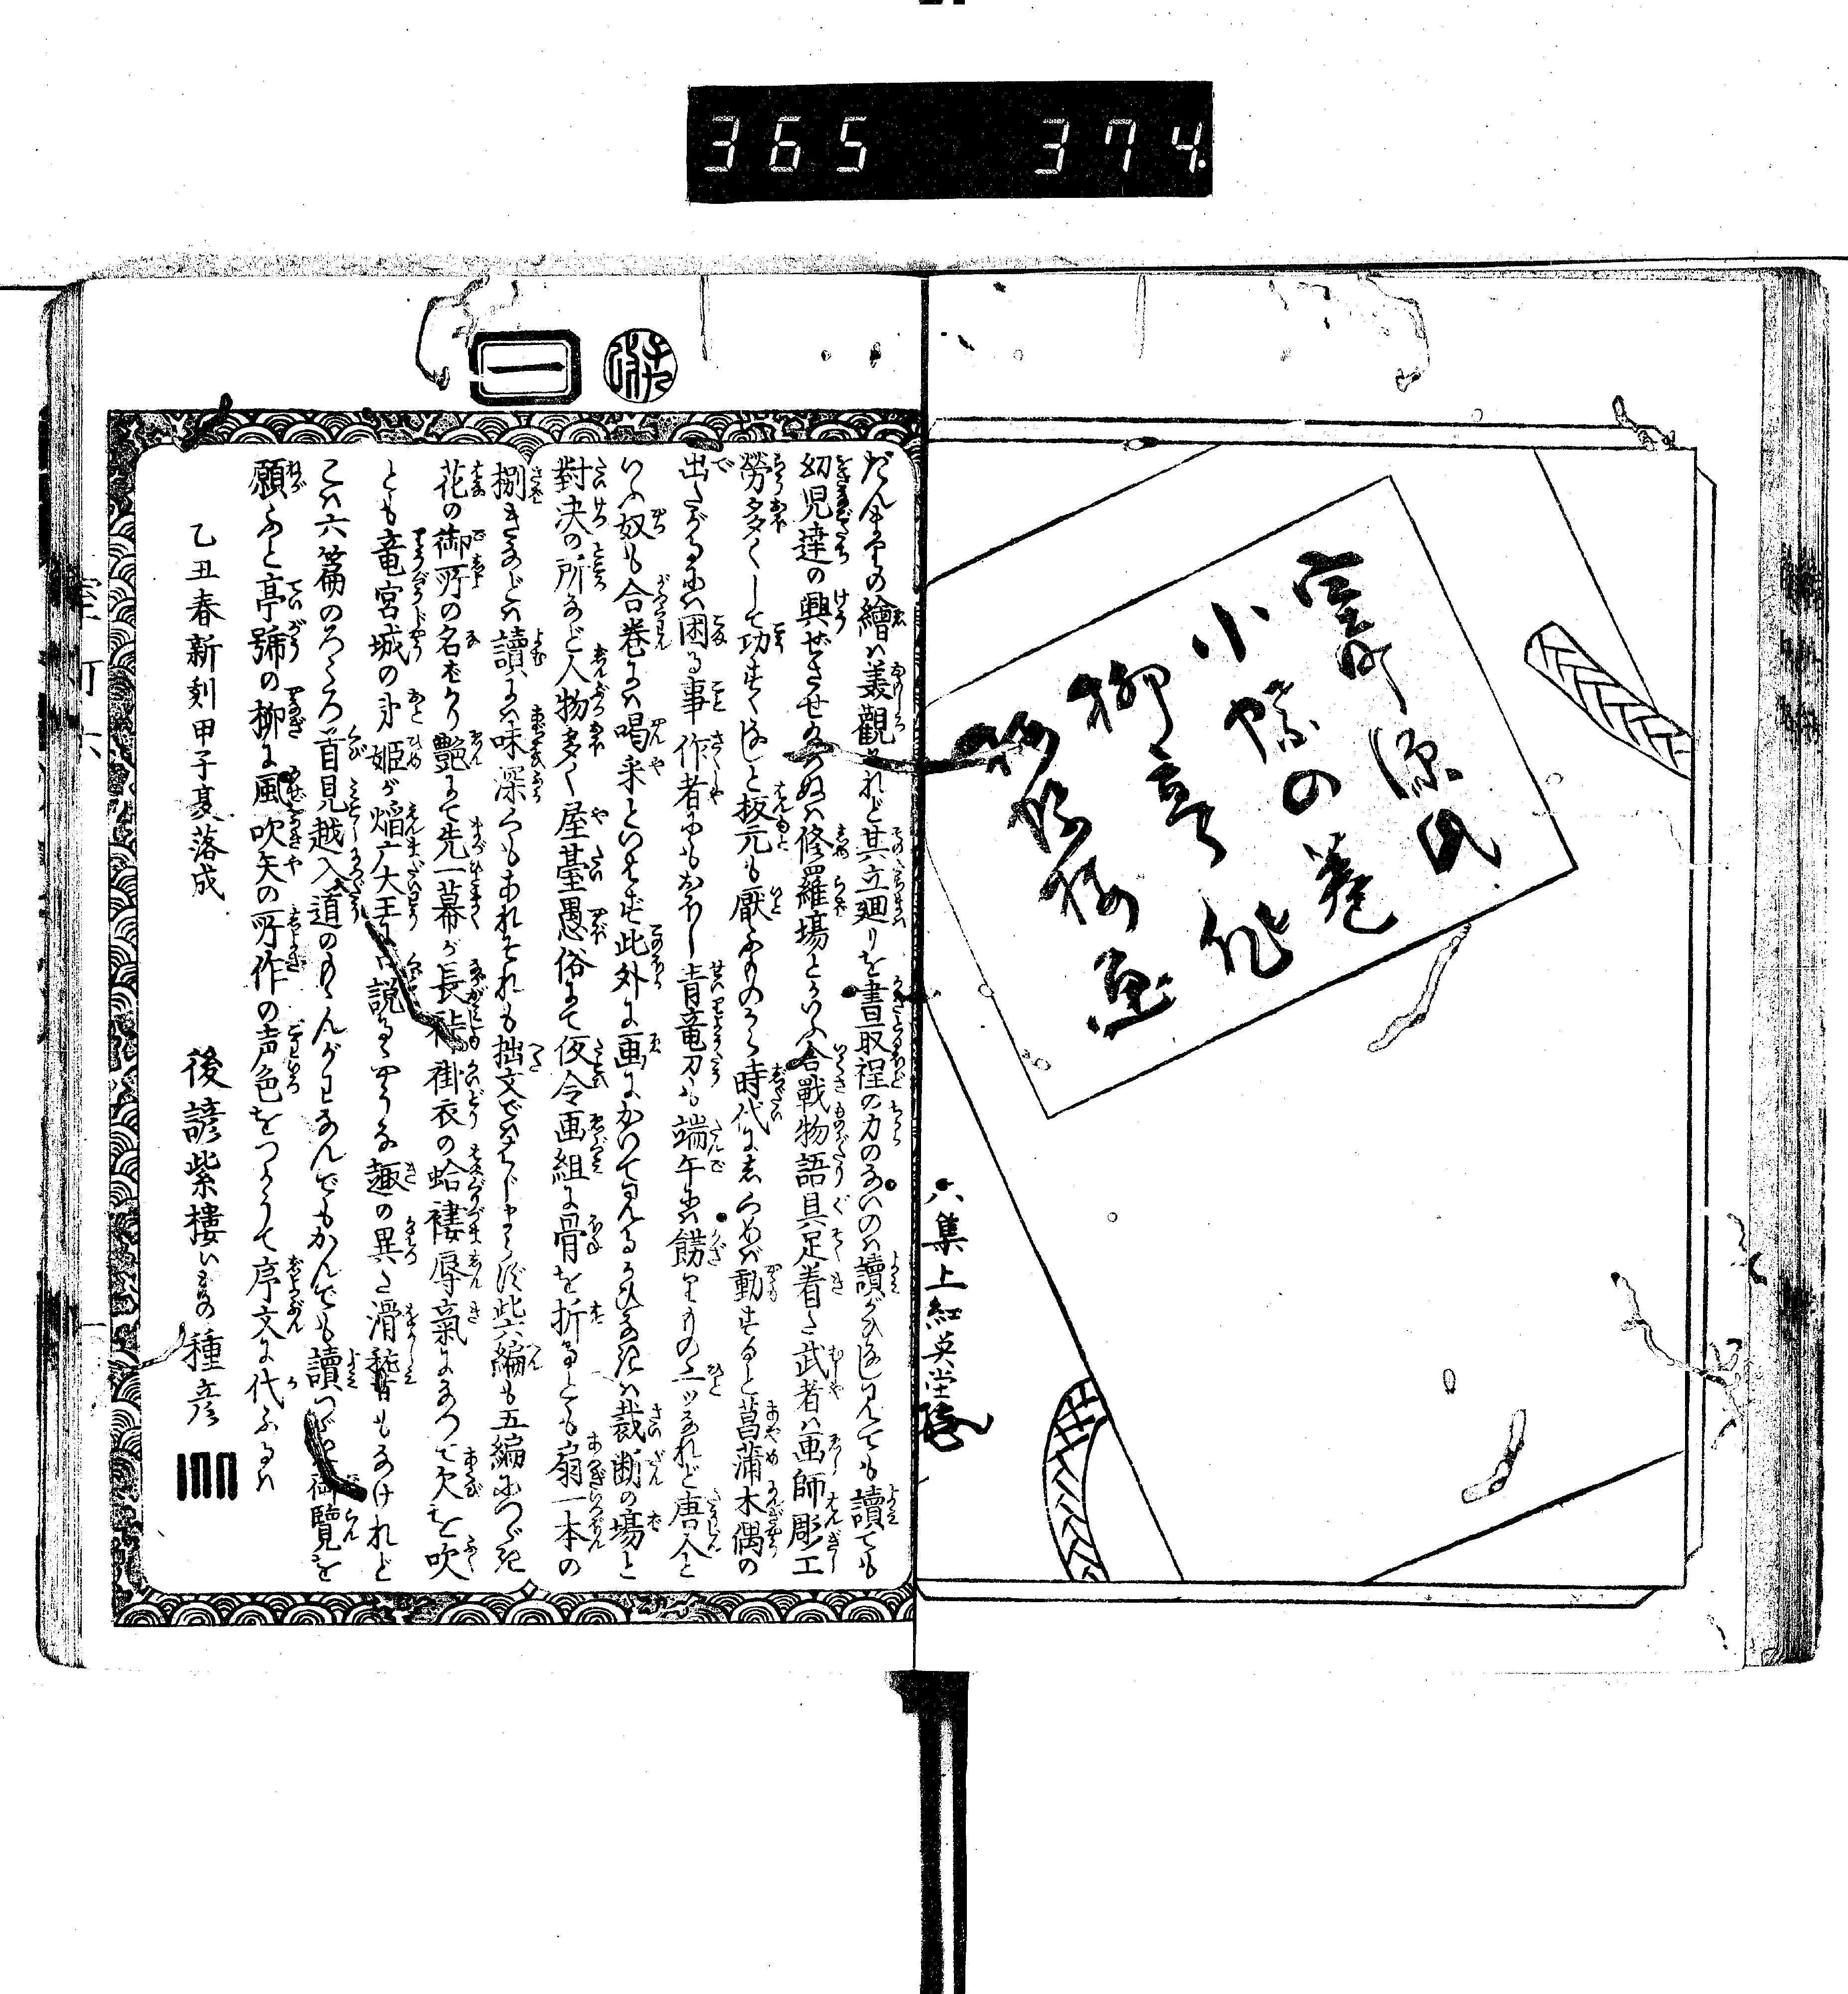 365 374
室町源氏
小蝶の巻
柳亭作
梅蝶楼画
六集上紅英堂
一
だんまりの繪は美觀けれど其立廻りを書取程の力のないのは讀がひなし見ても讀ても
幼児達の興ぜさせ給ぬは修羅場とかいふ合戰物語具足着た武者は画師彫工
勞多くして功すくなしと板元も厭ふものから時代にあらぬば動すると菖蒲木偶の
出たがるには困る事作者にもおほし青竜刀も端午には餝りもの二ッなれど唐人と
いふ奴も合巻には喝采といはず此外に画にかいて見るかひなきは裁断の場と
對决の所など人物多く屋䑓愚俗にて仮令画組に骨を折るとも扇一本の
捌きなどは讀には味深くもあれそれも拙文では
花の御所の名ばかり艶にて先一幕が長裃裲衣の蛤褄辱氣になつて欠を吹
とも竜宮城の弟姫が焔广大王に口説るやうな趣の異た滑稽もなけれど
こは六篇のろくろ首見越入道のなんでもかんでも讀つゞき御覽を
願ふと亭號の柳に風吹矢の所作の声色をつかうて序文に代ふるは
乙丑春新刻甲子夏落成
後諺紫樓 種彦
室町六